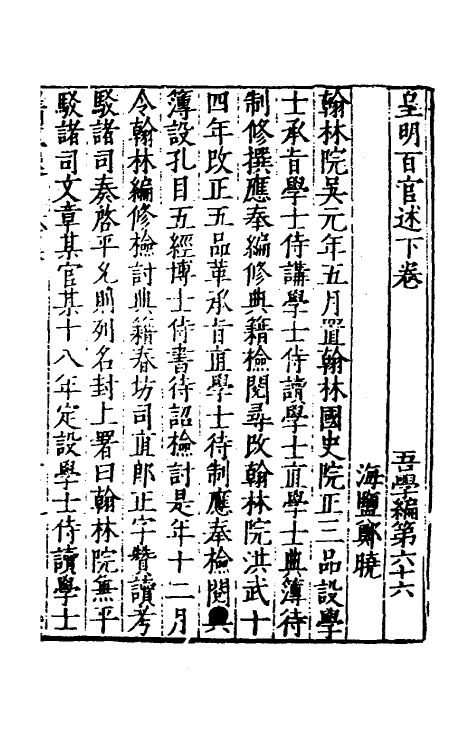 皇明百官述下卷 吾學編第六十六
海鹽鄭曉
翰林院吳元年五月置翰林國史院正三品設學
士承旨學士侍講學士侍讀學士直學士典簿待
制修撰應奉編修典籍檢閱尋改翰林院洪武十
四年改正五品革承旨直學士待制應奉檢閱典
簿設孔目五經博士侍書待詔檢討是年十二月
令翰林編修檢討典籍春坊司直郎正字贊讀考
駁諸司奏啓平允則列名封上署曰翰林院無平
駁諸司文章某官某十八年定設學士侍讀學士